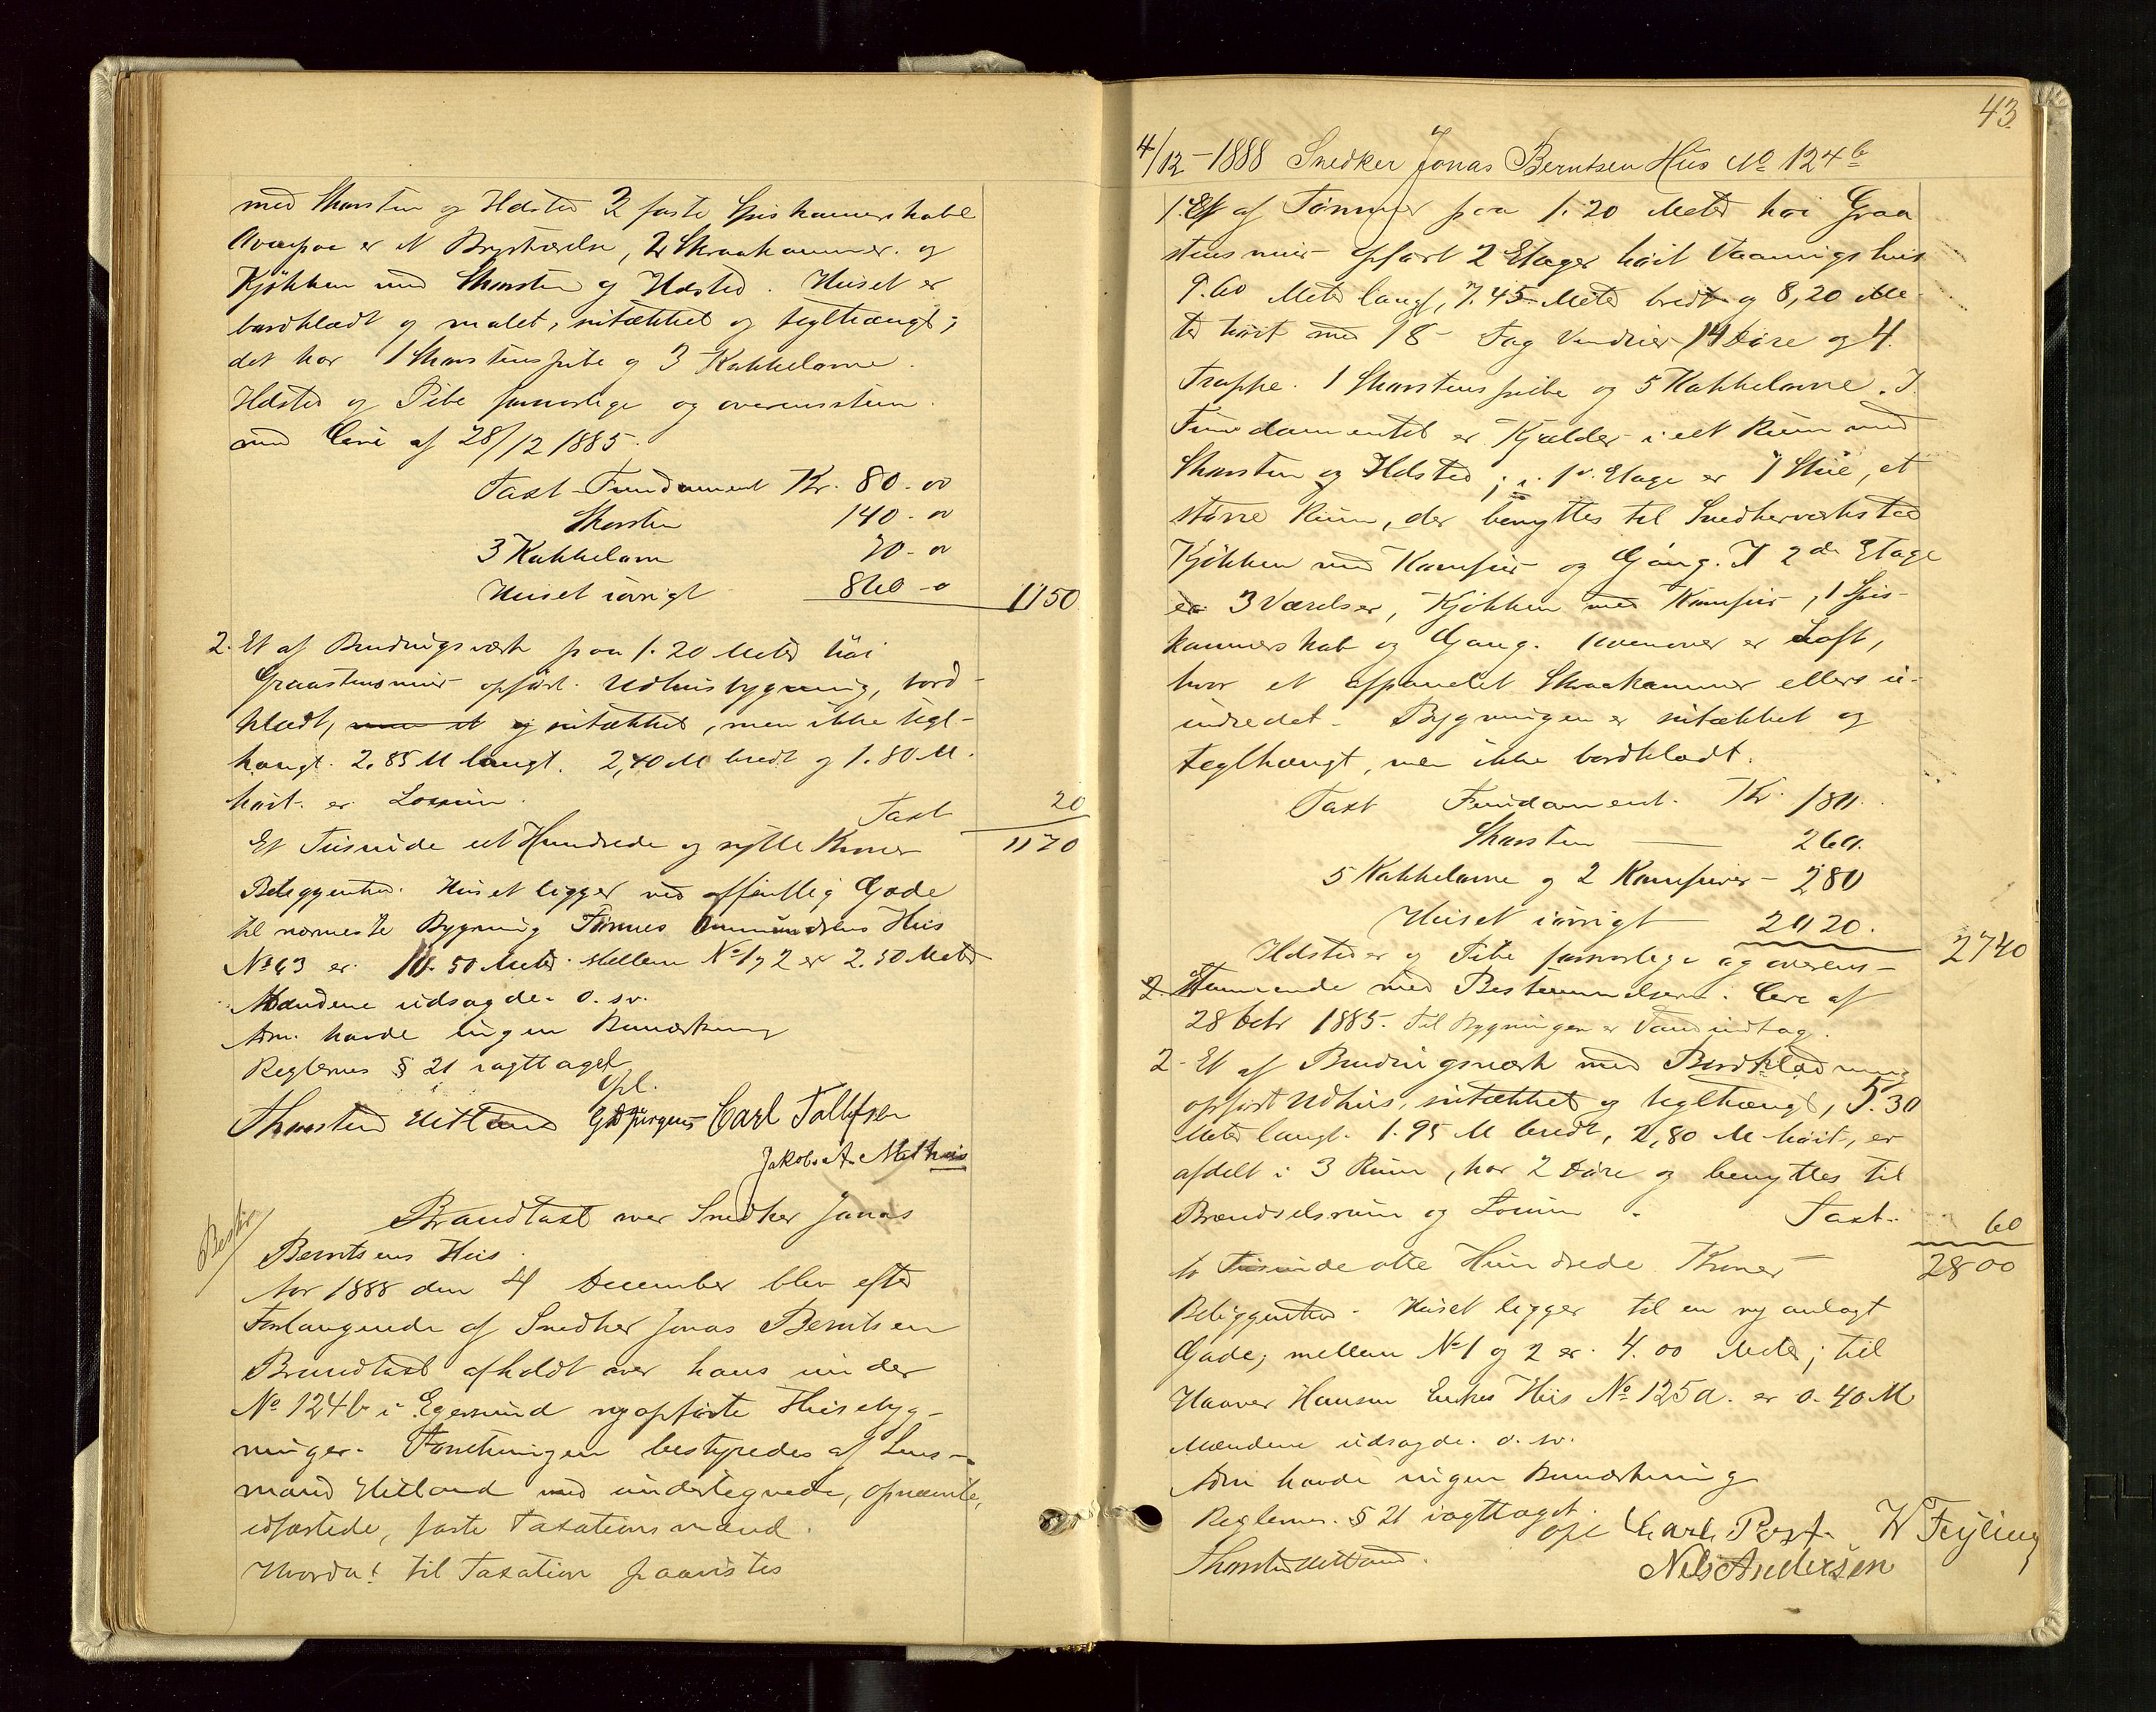 med Skorsten og Ildsted 3 faste Spiskammerskabe
Ovenpaa er et Brystværelse, 2 Skraakammer og
Kjøkken med Skorsten og Ildsted. Huset er
bordklædt og malet, nitækket og teglhængt;
det har 1 Skorstenspibe og 3 Kakkelovne.
Ildsted og Pibe forsvarlige og overensstem.
med Circ af 28/12 1885.
Taxt Fundament Kr. 80-00
Skorsten 140-00
3 Kakkelovne 70-00
Huset iøvrigt 860-0 1150
2. Et af Bindingsværk paa 1.20 Meter høi
Graastensmur opført Udhusbygning, bord-
klædt, og nitækket, men ikke tegl-
hængt. 2.85 M langt. 2,40 M bredt og 1.80 M.
høit. er
Taxt 20
Et Tusinde et Hundrede og sytti Kroner 1170
Beliggenhed. Huset ligger ved offentlig Gade
til nærmeste Bygning Tønnes Ommundsens Hus
No 63 er 10.50 Meter. Mellem No 1 og 2 er 2.50 Meter
Mændene udsagde o. sv.
Adm. havde ingen Bemærkning
Reglernes § 21 iagttaget
Opl.
Thorsten Hetland G Jørgens Carl Tollefsen
Jakob A. Mathis
Branddtaxt over Snedker Jonas
Berntsens Hus.
Aar 1888 den 4 December blev efter
Forlangende af Snedker Jonas Berntsen
Brandtaxt afholdt over hans under
No 124b i Egersund nyopførte Husebyg-
ninger. Forretningen bestyredes af Lens-
mand Hetland med undertegnede, opnævnte,
edfæstede, faste Taxationsmænd.
Hvorda! til Taxation paavistes
43
4/12-1888 Snedker Jonas Berntsen Hus No 124b
1. Et af Tømmer paa 1.20 Meter høi Graa
stensmur opført 2 Etager høit Vaaningshus
9.60 Meter langt, 7.45 Meter bredt og 8,20 Me
ter høit med 18 Fag Vinduer 14 Døre og 4
Trappe. 1 Skorstenspibe og 5 Kakkelovne. I
Fundamentet er Kjælder i et Rum med
Skorsten og Ildsted; i 1ste Etage er 1 Stue, et
større Rum, der benyttes til Snedkerværksted
Kjøkken med Komfur og Gang. I 2den Etage
er 3 Værelser, Kjøkken med Komfur, 1 Spis-
kammerskab og Gang. Ovenover er Loft,
hvor et afpanelet Skraakammer ellers u-
indredet. Bygningen er nitækket og
teglhængt, men ikke bordklædt.
Taxt Fundament. Kr. 180.
Skorsten 260.
5 Kakkelovne og 2 Komfurer - 280
Huset iøvrigt 2020. 2740
Ildsteder og Pibe forsvarlige og overens-
stemmende med Bestemmelserne. Circ af
28 Debr 1885. Til Bygningen er Vandindtag.
2. Et af Bindingsværk med Bordklædning
opført Udhus, nitækket og teglhængt, 5.30
Meter langt. 1.95 M bredt, 2,80 M høit, er
afdelt i 3 Rum, har 2 Døre og benyttes til
Brændselsrum og
Taxt. 60
to Tusinde otte Hundrede Kroner 2800
Beliggenhed. Huset ligger til en ny anlagt
Gade, mellem No 1 og 2 er 4.00 Meter; til
Haaver Hansen Enkes Hus No 125a. er 0.40 M
Mændene udsagde. o. sv.
Adm havde ingen Bemærkning
Reglernes § 21 iagttaget.
Opl Charl. Post W Feyling
Thorsten Hetland. Nels Andersen